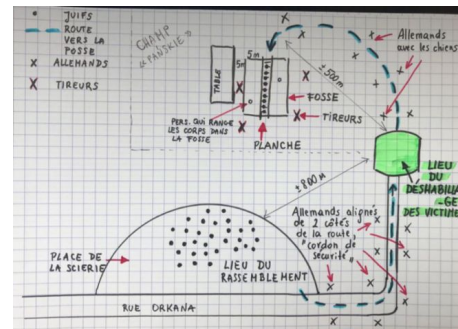 • JUIFS
ROUTE
VERS LA
FOSSE
x ALLEMANDS
X TIREURS
CHAMP
"PAŃSKIE"
5m
5m
TABLE
PERS. QUI RANGE
LES CORPS DANS
LA FOSSE
PLANCHE
FOSSE
TIREURS
±500m
Allemands
avec les chiens
LIEU
DU
DÉSHABILLA
-GE
DES VICTIMES
±800m
Allemands alignés
de 2 côtés
de la route,
"cordon de
sécurité"
PLACE DE
LA SCIERIE
LIEU DU
RASSEMBLEMENT
RUE ORKANA